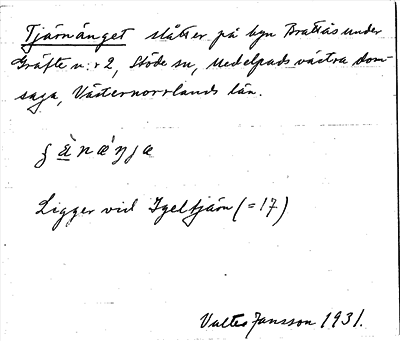 Tjärnänget slåtter på byn Brattås under
Gräfte n:r 2, Stöde sn, Medelpads västra dom-
saga, Västernorrlands län.
Ligger vid Igeltjärn (= 17)
Valter Jansson 1931.